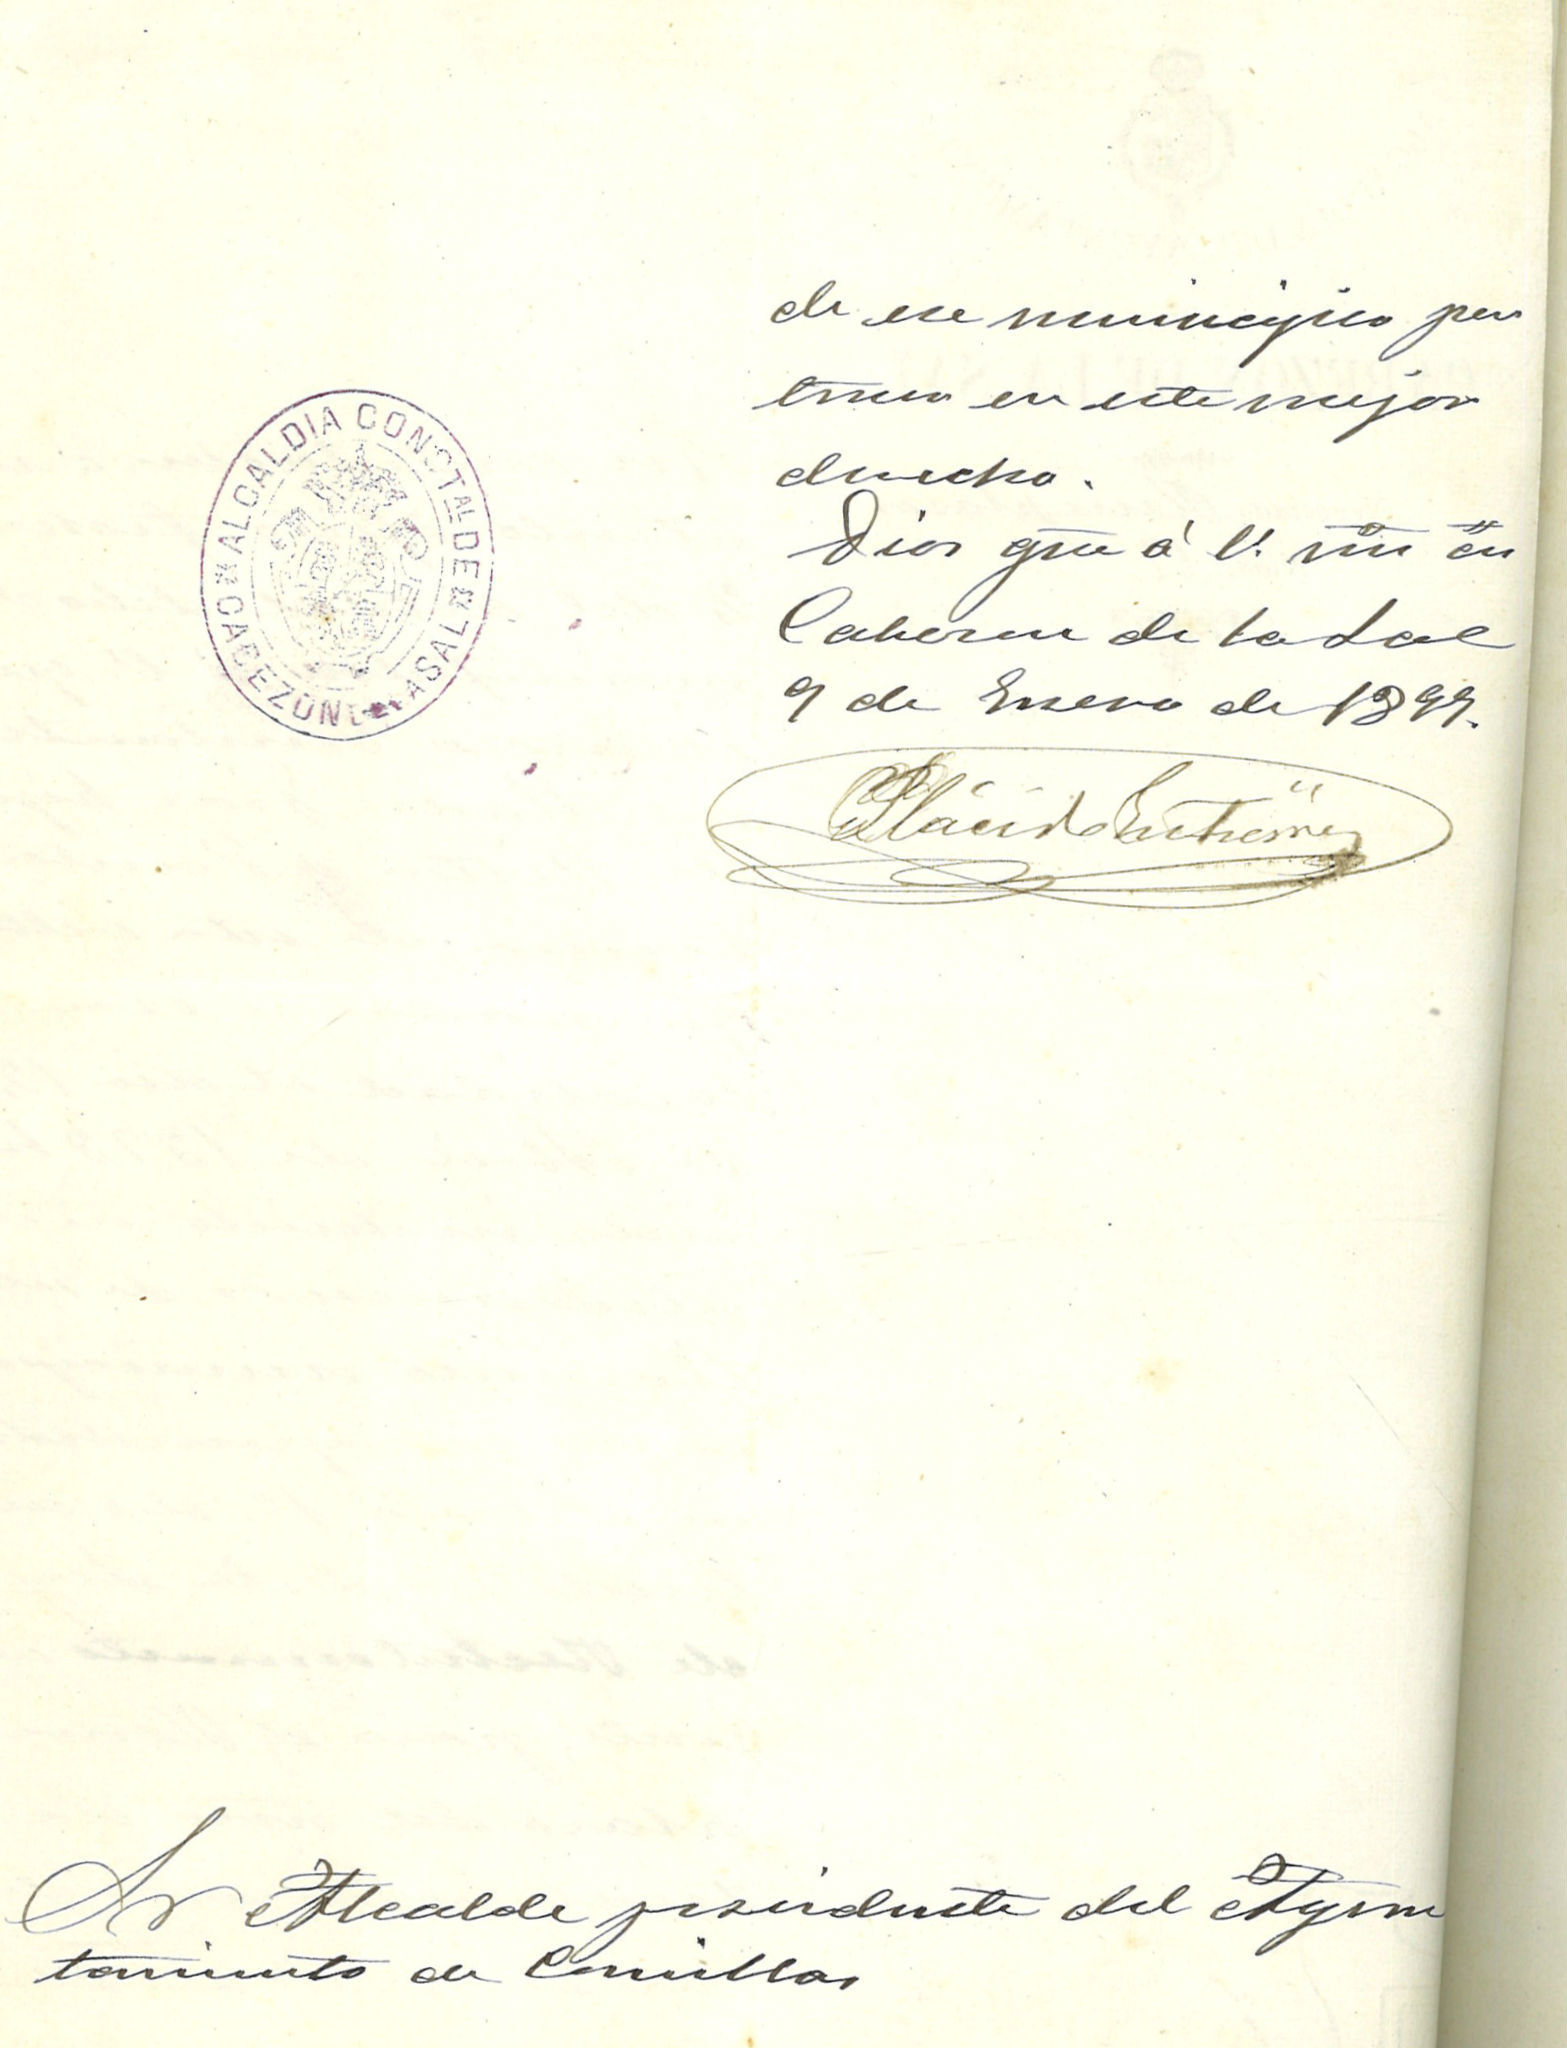 ALCALDIA CONSTAL DE CABEZON DE LA SAL
de ese municipio per
tenece en este mejor
derecho.
Dios gue á V. ms as
Cabezon de la Sal
9 de Enero de 1899.
Plácido Gutiérrez
Sr Alcalde presidente del Ayun
tamiento de Comillas